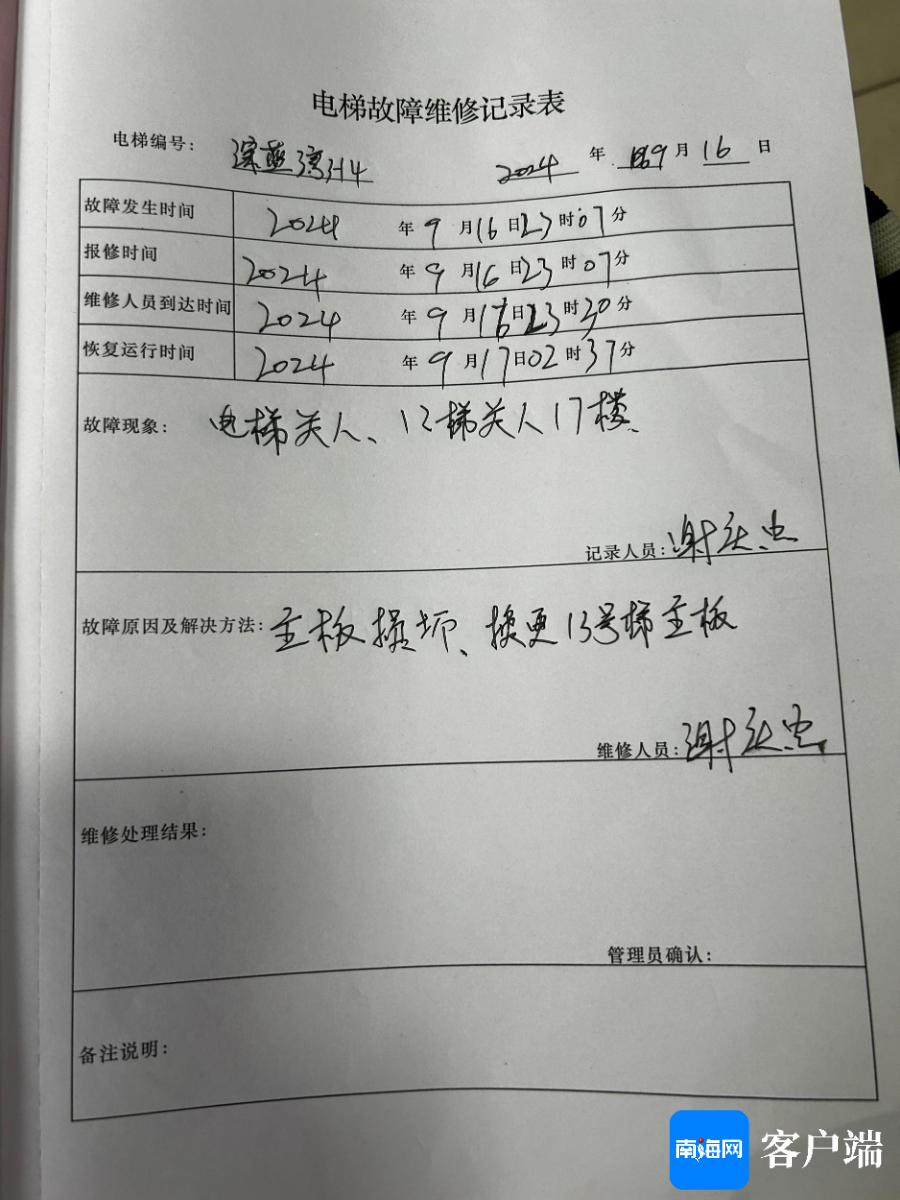 电梯故障维修记录表
电梯编号：
2024 年 9 月 16 日
故障发生时间 2024 年 9 月 16 日 23 时 07 分
报修时间 2024 年 9 月 16 日 23 时 07 分
维修人员到达时间 2024 年 9 月 16 日 23 时 30 分
恢复运行时间 2024 年 9 月 17 日 02 时 37 分
故障现象： 电梯关人、12梯关人17楼、
记录人员：谢庆忠
故障原因及解决方法：主板损坏、换更13号梯主板
维修人员：谢庆忠
维修处理结果：
管理员确认：
备注说明：
南海网 客户端